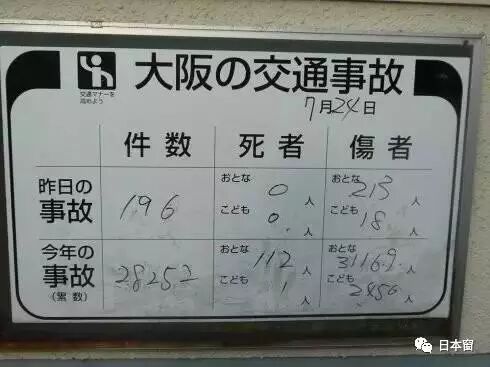 交通マナーを
高めよう
大阪の交通事故
7月24日
件数 死者 傷者
昨日の
事故
196
おとな 0 人
こども 0 人
おとな 213 人
こども 18 人
今年の
事故
(累数)
28252
おとな 112 人
こども 1 人
おとな 31169 人
こども 2456 人
日本窗